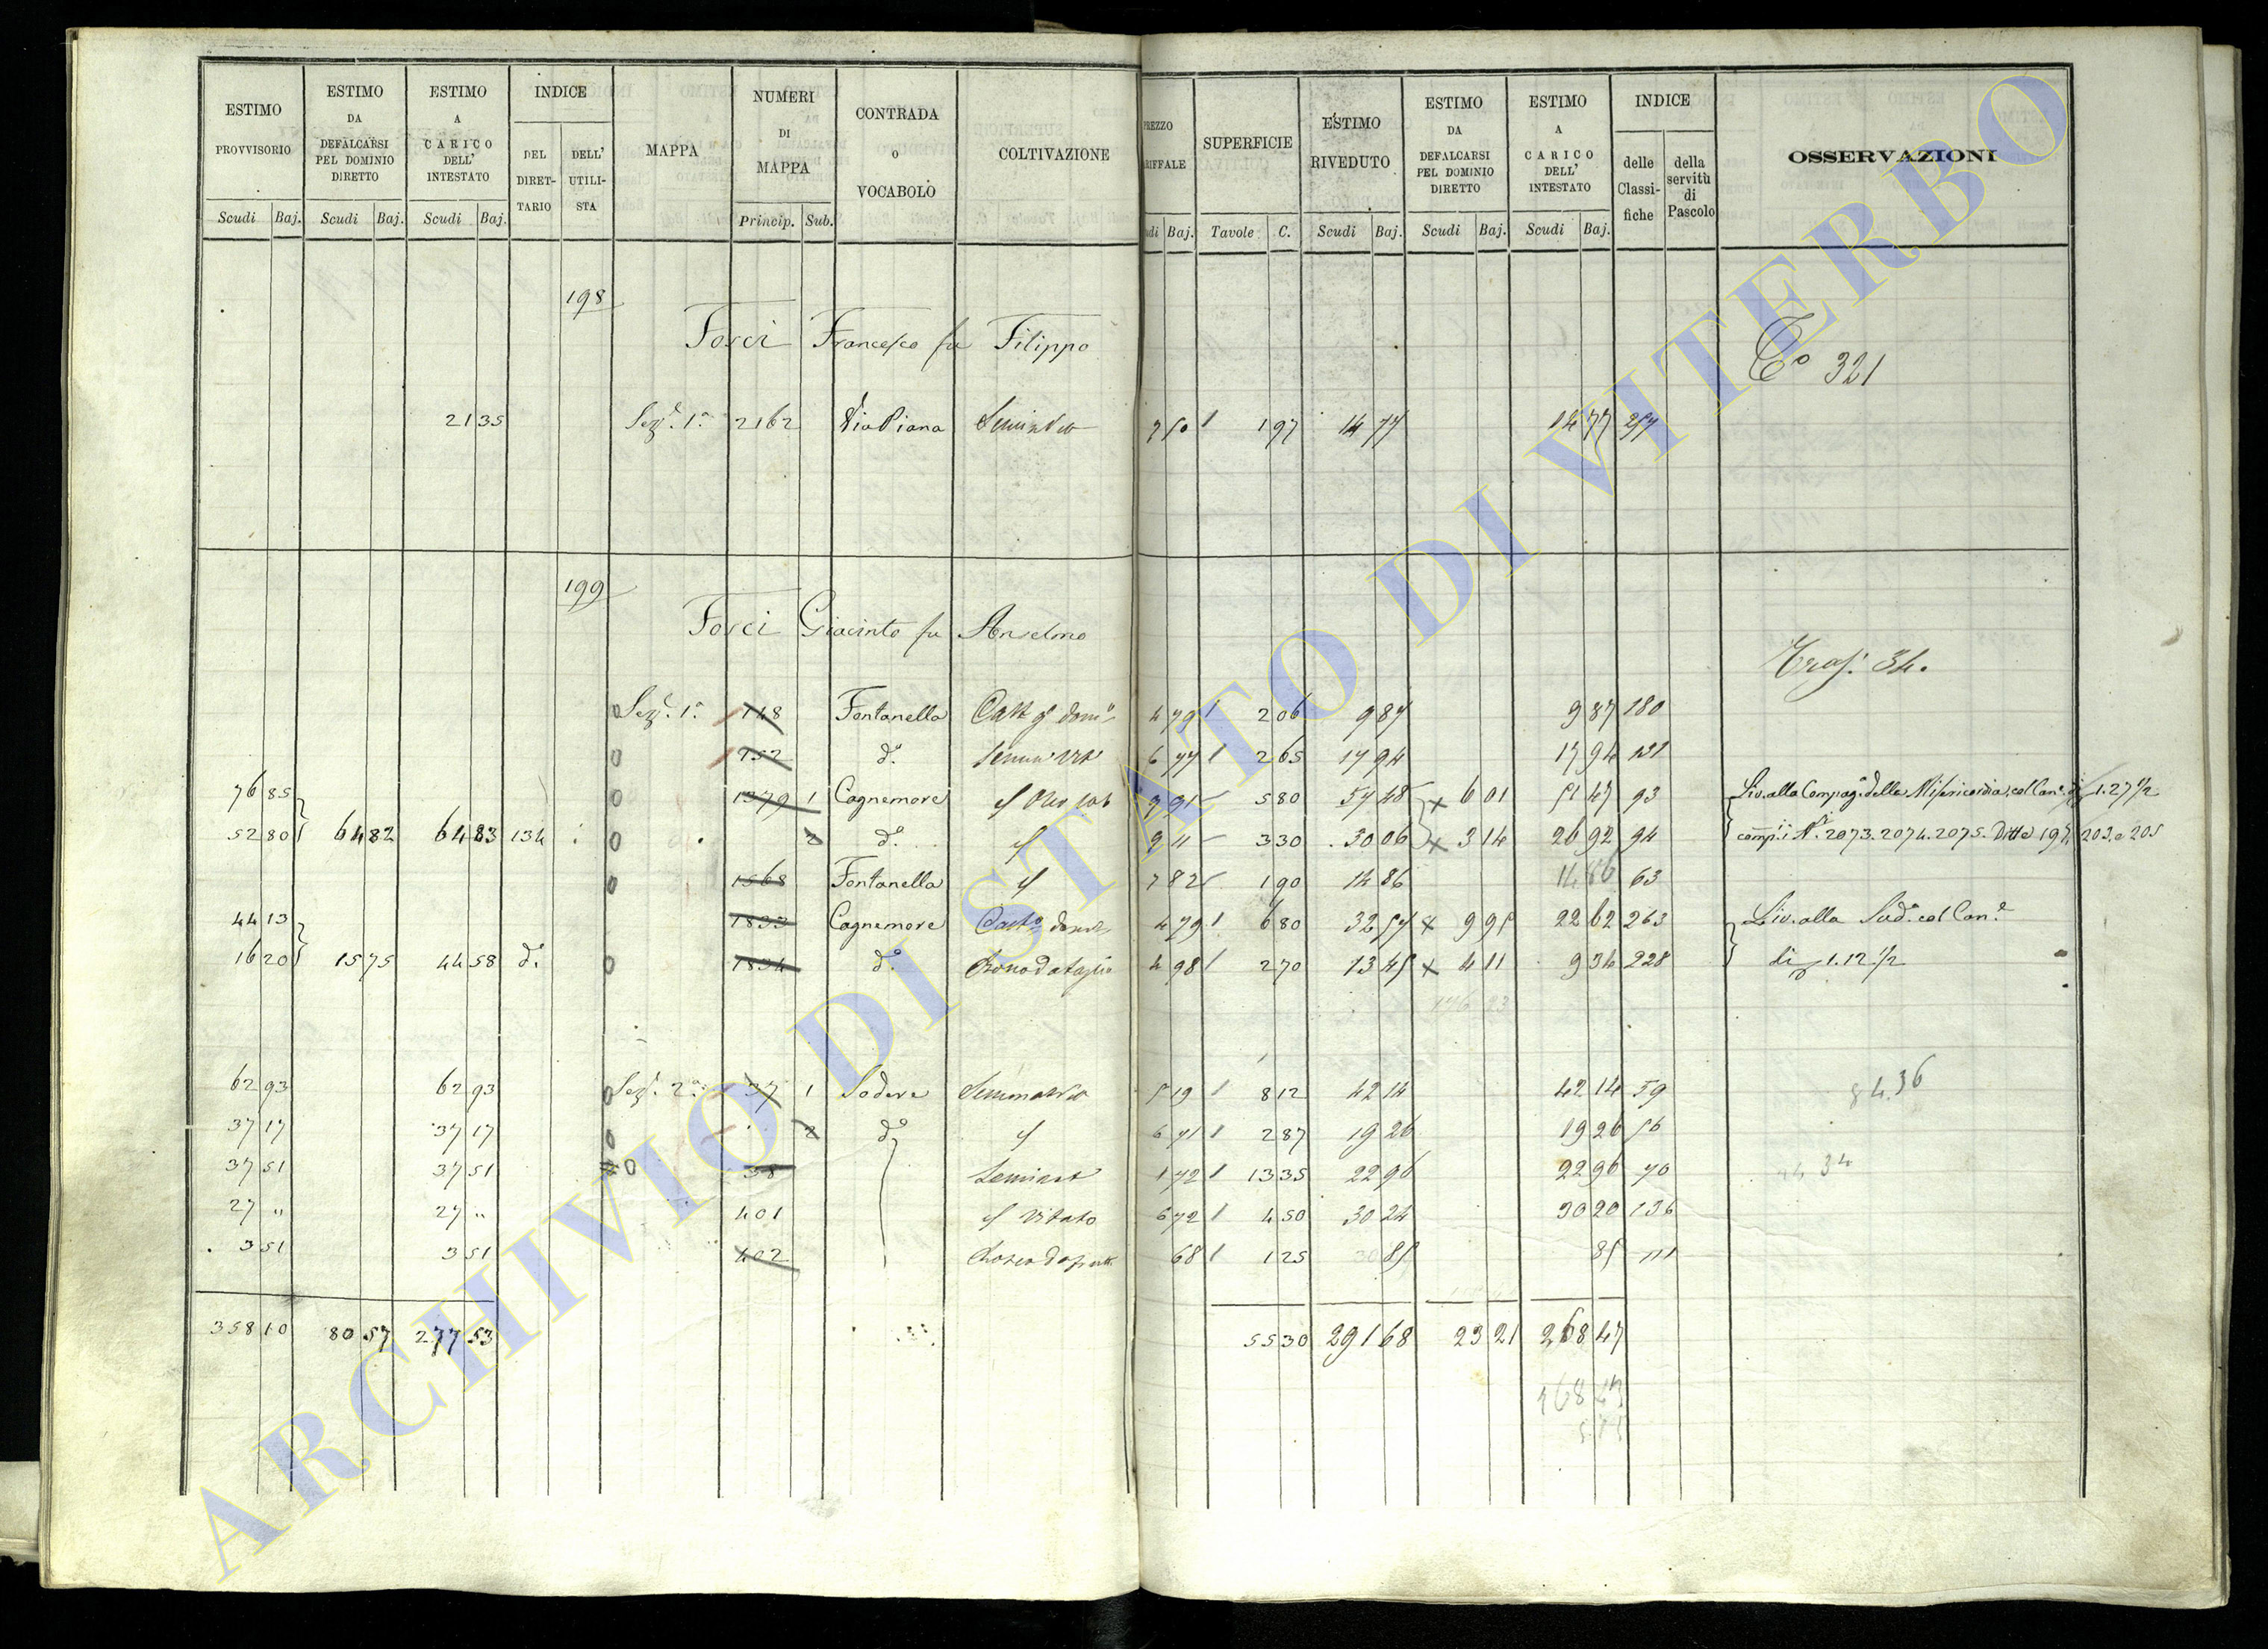 ESTIMO PROVVISORIO Scudi Baj.
ESTIMO DA DEFALCARSI PEL DOMINIO DIRETTO Scudi Baj.
ESTIMO A CARICO DELL' INTESTATO Scudi Baj.
INDICE DEL DIRET-TARIO DELL' UTILI-STA
MAPPA
NUMERI DI MAPPA Princip. Sub.
CONTRADA O VOCABOLO
COLTIVAZIONE
PREZZO Baj.
SUPERFICIE Tavole C.
ESTIMO RIVEDUTO Scudi Baj.
ESTIMO DA DEFALCARSI PEL DOMINIO DIRETTO Scudi Baj.
ESTIMO A CARICO DELL' INTESTATO Scudi Baj.
INDICE delle Classi-fiche della servitù di Pascolo
OSSERVAZIONI
198
Fosci Francesco fu Filippo
Co 321
21 35 Sez.e 1.a 2162 Via Piana 7 50 1 97 14 77 14 77 257
199
Fosci Giacinto fu Anselmo
Trasp. 34.
Sez.e 1.a 748 Fontanella 4 79 2 06 9 87 9 87 180
752 d.o 6 77 2 65 17 94 17 94 121
76 85 1379 1 Cagnemore 5 80 57 48 6 01 51 47 93 Liv. alla Compag.a della Misericordia col Can.e di 1.27 1/2
52 80 64 82 64 83 134 2 d.o 9 11 3 30 30 06 3 14 26 92 94 comp.i i N.i 2073. 2074. 2075. Ditte 197. 203. e 205
1568 Fontanella 7 82 1 90 14 86 14 86 63
44 13 1833 Cagnemore 4 79 6 80 32 57 9 95 22 62 263 Liv. alla Sud.a col Can.e
16 20 15 75 44 58 d.o 1834 d.o 4 98 2 70 13 45 4 11 9 34 228 di 1.12 1/2
62 93 62 93 Sez.e 2.a 37 1 Sodere Seminativo 5 19 8 12 42 14 42 14 59
37 17 37 17 2 d.o 6 71 2 87 19 26 19 26 56
37 51 37 51 38 1 72 13 35 22 96 22 96 70
27 " 27 " 401 Vitato 6 72 4 50 30 24 30 20 136
3 51 3 51 402 68 1 25 85 85
358 10 80 57 277 53 55 30 291 68 23 21 268 47
268 47
ARCHIVIO DI STATO DI VITERBO